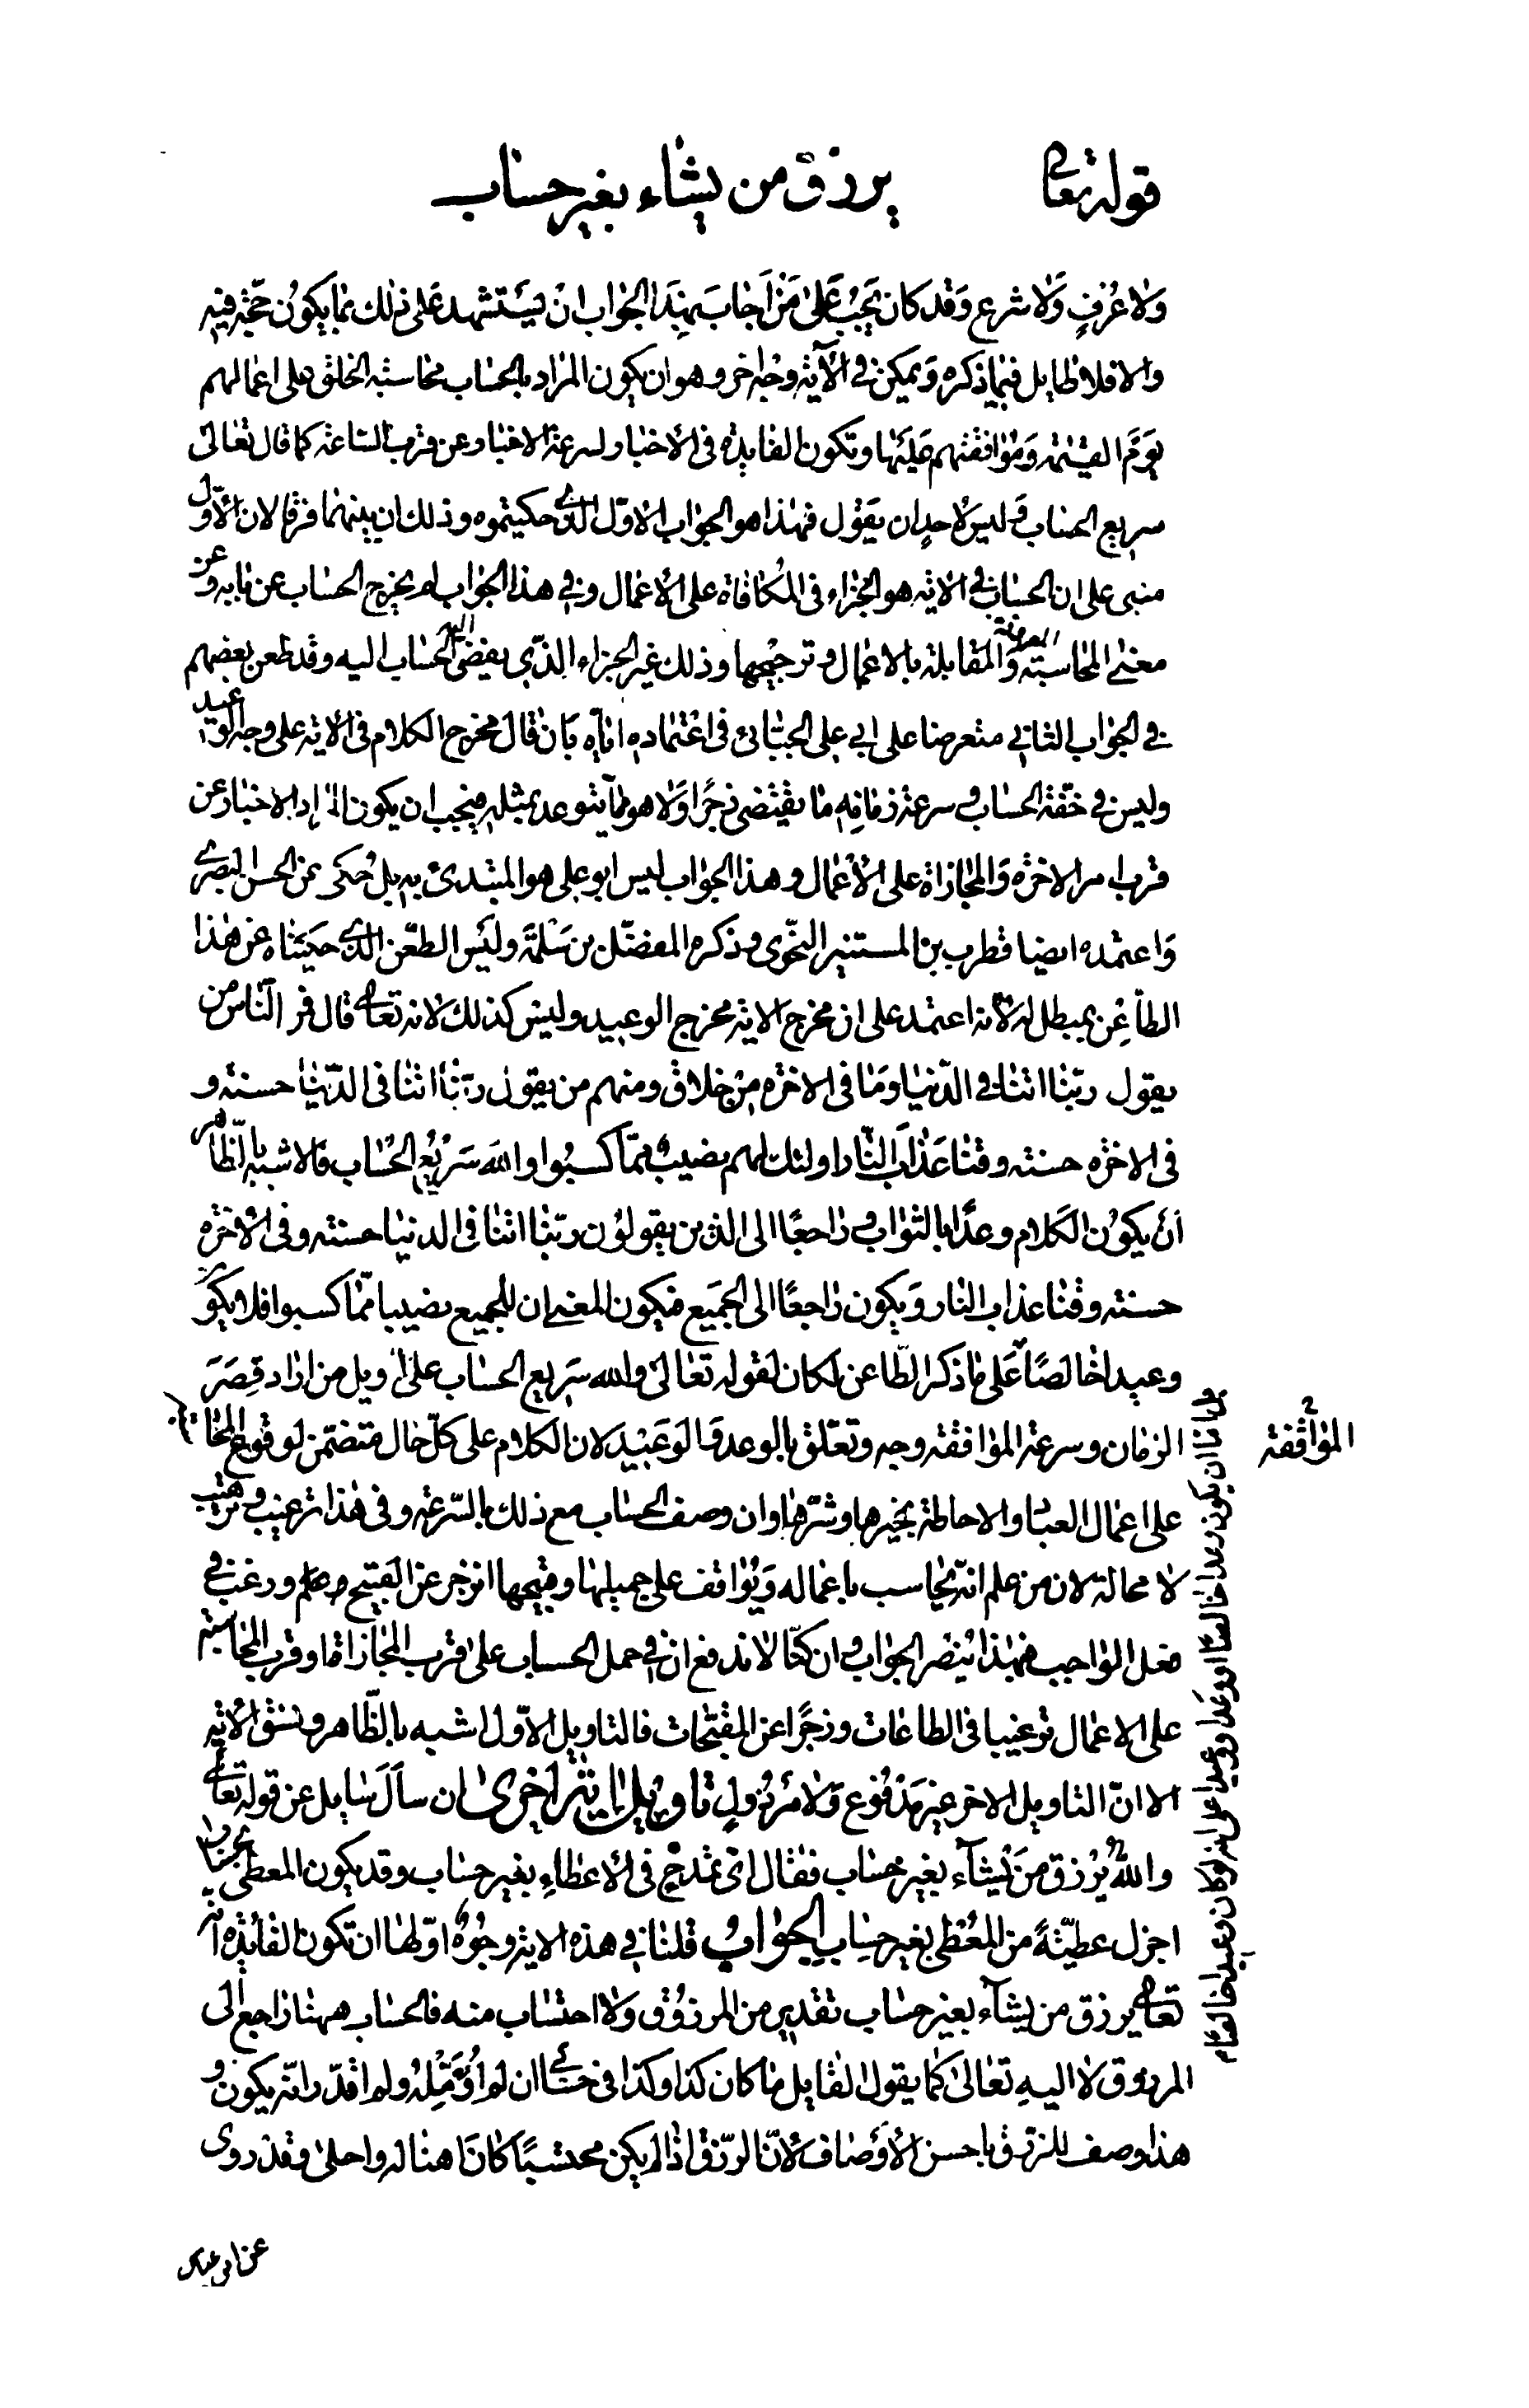 قوله تعالى يرزق من يشاء بغير حساب
وَلا عُرْفٍ وَلا شرع وَقد كان يَجِبُ عَلىٰ مَنْ اَجابَ بِهٰذَا الجوٰاب انْ يَسْتشهد عَلى ذٰلك بمٰا يكوُن حجّة فيه
والا فلا طايل فيمٰا ذكره وَيمكن في الآية وجه اخر وهو ان يكون المرٰاد بالحسٰاب محٰاسبة الخلق على اعمٰالهم
يَوْمَ القيٰمة وَمُوٰافقتهم عَليْهٰا وتكون الفايدة فى الاخبٰار لسرعة الاخبٰار عن قرب السٰاعة كمٰا قال تعٰالى
سريع الحسٰاب وَليس لاحدٍ ان يقول فهٰذا هو الجوٰاب الاوّل الّذى حكيتموه وذلك ان بينهمٰا فرقا لان الاوّل
مبنى على ان الحسٰاب في الاية هو الجزٰاء فى المُكٰافاة على الاعمال وفي هذا الجوٰاب لم يخرج الحسٰاب عن بٰابه وعن
معنى المحٰاسبة وَالمقابلة بالاعمال وترجيحها وذلك غير الجزٰاء الّذي يفضى الحسٰاب اليه وقد طعن بعضهم
في الجوٰاب الثاني معترضا على ابي على الجبّائى فى اعْتمٰاده ايّاه بَان قٰالَ مخرج الكلام فى الاية على وجه الوعيد
وليس في خفّة الحسٰاب وسرعة زمٰانِهِ مٰا يقتضى زجرًا وَلا هو ممّا يتوعد بمثله فيجب ان يكون المرٰاد الاخبٰار عن
قرب امر الاخرة وَالمجٰازاة على الأعمٰال وهذا الجوٰاب ليس ابو على هو المبتدئ به بل حُكى عن الحسن البصرى
وَاعتمده ايضا قطرب بن المستنير النحّوى وذكره المفضّل بن سَلمَة وليْس الطعْن الّذى حكيْناه عن هٰذا
الطّاعِن بمبطل له لانّه اعتمد على ان مخرج الاية مخرج الوعيد وليس كذلك لانه تعالى قال فمن النّاس من
يقول ربّنا اتنا في الدّنيا ومَا فى الاخرة مِنْ خلاق ومنهم من يقول ربّنا اتنا فى الدّنيٰا حسنة و
فى الاخرة حسنة وقنا عَذٰابَ النّٰار اولئك لهم نصيبٌ ممّا كسبُوا واللهُ سَرِيْعُ الحِسٰاب فالاشبه بالظّاهر
أن يكوُن الكَلام وعدًا بالثوٰاب ورٰاجعًا الى الذين يقولوُن ربّنا اتنا فى الدنيٰا حسنة وفى الاخرة
حسنة وقنٰا عذاب النٰار وَيكون رٰاجعًا الى الجمَيع فيكون المعنى ان للجميع نصيبا ممّا كسبوا فلا يكو
وعيدا خٰالصًا عَلى مٰا ذكر الطّاعن لكان لقوله تعٰالى والله سَريع الحسٰاب على تٰاويل من ارٰاد قِصَرَ
الزمان وسرعة الموافقة وجه وتعلّق بالوعد وَالوَعيْد لان الكلام على كلّ حٰال متضمن لوقوع المحٰا
المؤاقفة
على اعمٰال العبٰاد والاحاطة بخيرها وشرّهٰا وان وصف الحسٰاب مع ذلك بالسّرعة وفى هٰذا ترغيب وترهيب
لا محالة لان من علم انّه يحٰاسب باعماله وَيُوٰاقف على جميلهٰا وقبيحها انزجر عن القبيح ورغب في
فعل الوٰاجب فبهٰذا يُنصَر الجوٰاب وان كنّا لا ندفع ان في حمل الحساب علىٰ قرب المجٰازاة او قرب المحٰاسبة
على الاعمٰال ترغيبا فى الطاعٰات وزجرًا عن المقبّحٰات فالتاويل الاوّل اشبه بالظّاهر ونسق الاية
الا انّ التاويل الاخر غير مَدْفُوع وَلا مَرْذُولٍ تٰاويل اٰية اخرىٰ ان سأَلَ سٰايل عن قوله تعٰالى
واللهُ يَرْزق مَن يشٰاء بغير حِسٰاب فقٰال اى تمدح فى الاعطاءِ بغير حسٰاب وقد يكون المعطى بحسٰاب
اجزل عطيّةً من المُعْطى بغير حِسٰابٍ الجوٰابُ قلنٰا في هذه الاية وجُوهٌ اوّلهٰا ان تكون الفٰايدة انّه
تعالى يرزق من يشٰاء بغير حسٰاب تقدير من المرزوُق وَلا احتسٰاب منه فالحسٰاب ههنٰا رٰاجع الى
المرزوق لا اليهِ تعٰالىٰ كمٰا يقول القٰايل مٰا كان كذا وكذا فى حسٰابى ان لم اُؤمّلْه ولم اقدّر انّه يكون و
هذا وصف للرزق باحسن الاَوْصٰاف لانّ الرّزق اذا لم يكن محتسبًا كانَ اهنٰا له واحلىٰ وقد روى